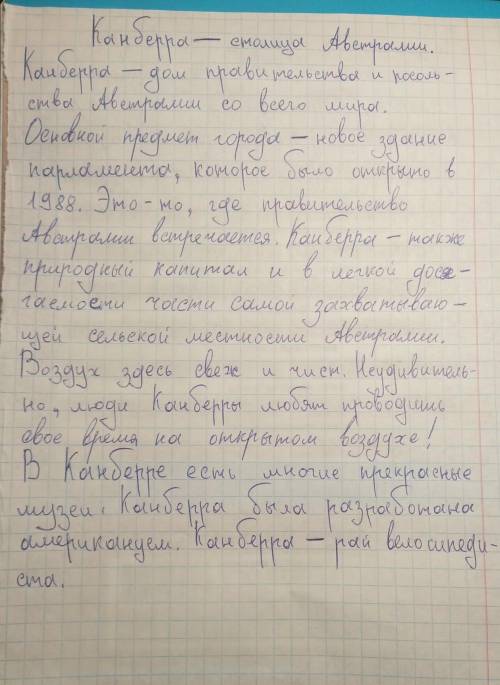 Канберра — столица Австралии.
Канберра — дом правительства и посоль-
ства Австралии со всего мира.
Основной предмет города — новое здание
парламента, которое было открыто в
1988. Это-то, где правительство
Австралии встречается. Канберра — также
природный капитал и в легкой дося-
гаемости части самой захватываю-
щей сельской местности Австралии.
Воздух здесь свеж и чист. Неудивитель-
но, люди Канберры любят проводить
свое время на открытом воздухе!
В Канберре есть многие прекрасные
музеи. Канберра была разработана
американцем. Канберра — рай велосипеди-
ста.